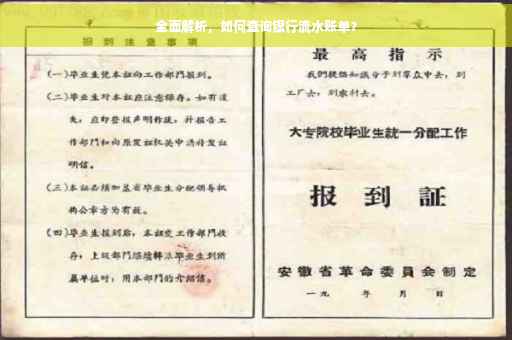 全面解析，如何查询银行流水账单？
报到注意事项
(一)毕业生凭本证向工作部门报到。
(二)毕业生对本证应注意保存。如有遗
失，应即登报声明作废，并报告工
作部门和向原发证机关申请补发证
明信。
(三)本证必须加盖省毕业生分配领导机
构公章方为有效。
(四)毕业生报到后，本证交工作部门收
存；上级部门继续转派毕业生到所
属单位时，用本部门的介绍信。
最高指示
我们提倡知识分子到群众中去，到
工厂去，到农村去。
大专院校毕业生統一分配工作
报到証
安徽省革命委員会制定
一九 年 月 日